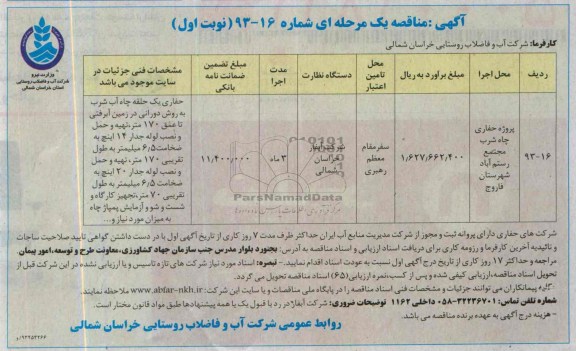 آگهی :مناقصه یک مرحله ای شماره ۱۶-۹۳ (نوبت اول)
کارفرما: شرکت آب و فاضلاب روستایی خراسان شمالی
وزارت نیرو
شرکت آب و فاضلاب روستایی
استان خراسان شمالی
ردیف
محل اجرا
مبلغ برآورد به ریال
محل تامین اعتبار
دستگاه نظارت
مدت اجرا
مبلغ تضمین ضمانت نامه بانکی
مشخصات فنی جزئیات در سایت موجود می باشد
۹۳-۱۶
پروژه حفاری
چاه شرب
مجتمع
رستم آباد
شهرستان
فاروج
۱,۶۲۷,۶۶۲,۴۰۰
سفر مقام
معظم
رهبری
شرکت آبفار
خراسان
شمالی
۳ ماه
۱۱,۴۰۰,۰۰۰
حفاری یک حلقه چاه آب شرب
به روش دورانی در زمین آبرفتی
تا عمق ۱۷۰ متر،تهیه و حمل
و نصب لوله جدار ۱۴ اینچ به
ضخامت ۶٫۵ میلیمتر به طول
تقریبی ۱۷۰ متر،تهیه و حمل
و نصب لوله جدار ۲۰ اینچ به
ضخامت ۶٫۵ میلیمتر به طول
تقریبی ۷۰ متر،تجهیز کارگاه و
شست و شو و آزمایش پمپاژ چاه
به میزان مورد نیاز و...
ParsNamadData
شرکت های حفاری دارای پروانه ثبت و مجوز از شرکت مدیریت منابع آب ایران حداکثر ظرف مدت ۷ روز کاری از تاریخ آگهی اول با در دست داشتن گواهی تایید صلاحیت ساجات
و تائیدیه آخرین کارفرما و رزومه کاری برای دریافت اسناد ارزیابی و اسناد مناقصه به آدرس: بجنورد بلوار مدرس جنب سازمان جهاد کشاورزی،معاونت طرح و توسعه،امور پیمان
مراجعه و حداکثر ۱۷ روز کاری از تاریخ درج آگهی اول نسبت به عودت اسناد اقدام نمایند.- تبصره: اسناد مورد نیاز شرکت های تازه تاسیس و یا ارزیابی نشده در این شرکت قبل از
تحویل اسناد مناقصه،ارزیابی کیفی شده و پس از کسب نمره ارزیابی (۶۵) اسناد مناقصه تحویل می گردد.
پیمانکاران می توانند جزئیات و مشخصات فنی اسناد مناقصه را در پایگاه ملی مناقصات و یا سایت این شرکت: www.abfar-nkh.ir ملاحظه نمایند.
شماره تلفن تماس: ۳۲۲۳۶۷۰۱-۰۵۸ داخلی ۱۱۶۲ توضیحات ضروری: شرکت آبفار در رد یا قبول یک یا همه پیشنهادها طبق مواد قانون مختار است.
- هزینه درج آگهی به عهده برنده مناقصه می باشد.
روابط عمومی شرکت آب و فاضلاب روستایی خراسان شمالی